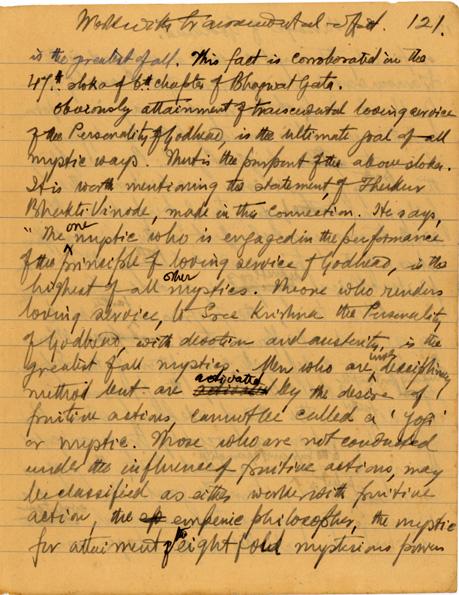 Work with transcendental effect. 121.
is the greatest of all. This fact is corroborated in the
47th sloka of 6th chapter of Bhagwat Geeta.
Obviously attainment of transcendental loving service
of the Personality of Godhead, is the ultimate goal of all
mystic ways. That is the purport of the above sloka.
It is worth mentioning the statement of Thakur
Bhakti Vinode, made in this connection. He says,
"The one mystic who is engaged in the performance
of the principle of loving service of Godhead, is the
highest of all other mystics. The one who renders
loving service, to Sree Krishna the Personality
of Godhead, with devotion and austerity, is the
greatest of all mystics. Men who are, disciplinary
method but are activated by the desire of
fruitive actions, cannot be called a 'Yogi'
or mystic. Those who are not conducted
under the influence of fruitive actions, may
be classified as either worker with fruitive
action, the empiric philosopher, the mystic
for attainment of the eight fold mysterious powers